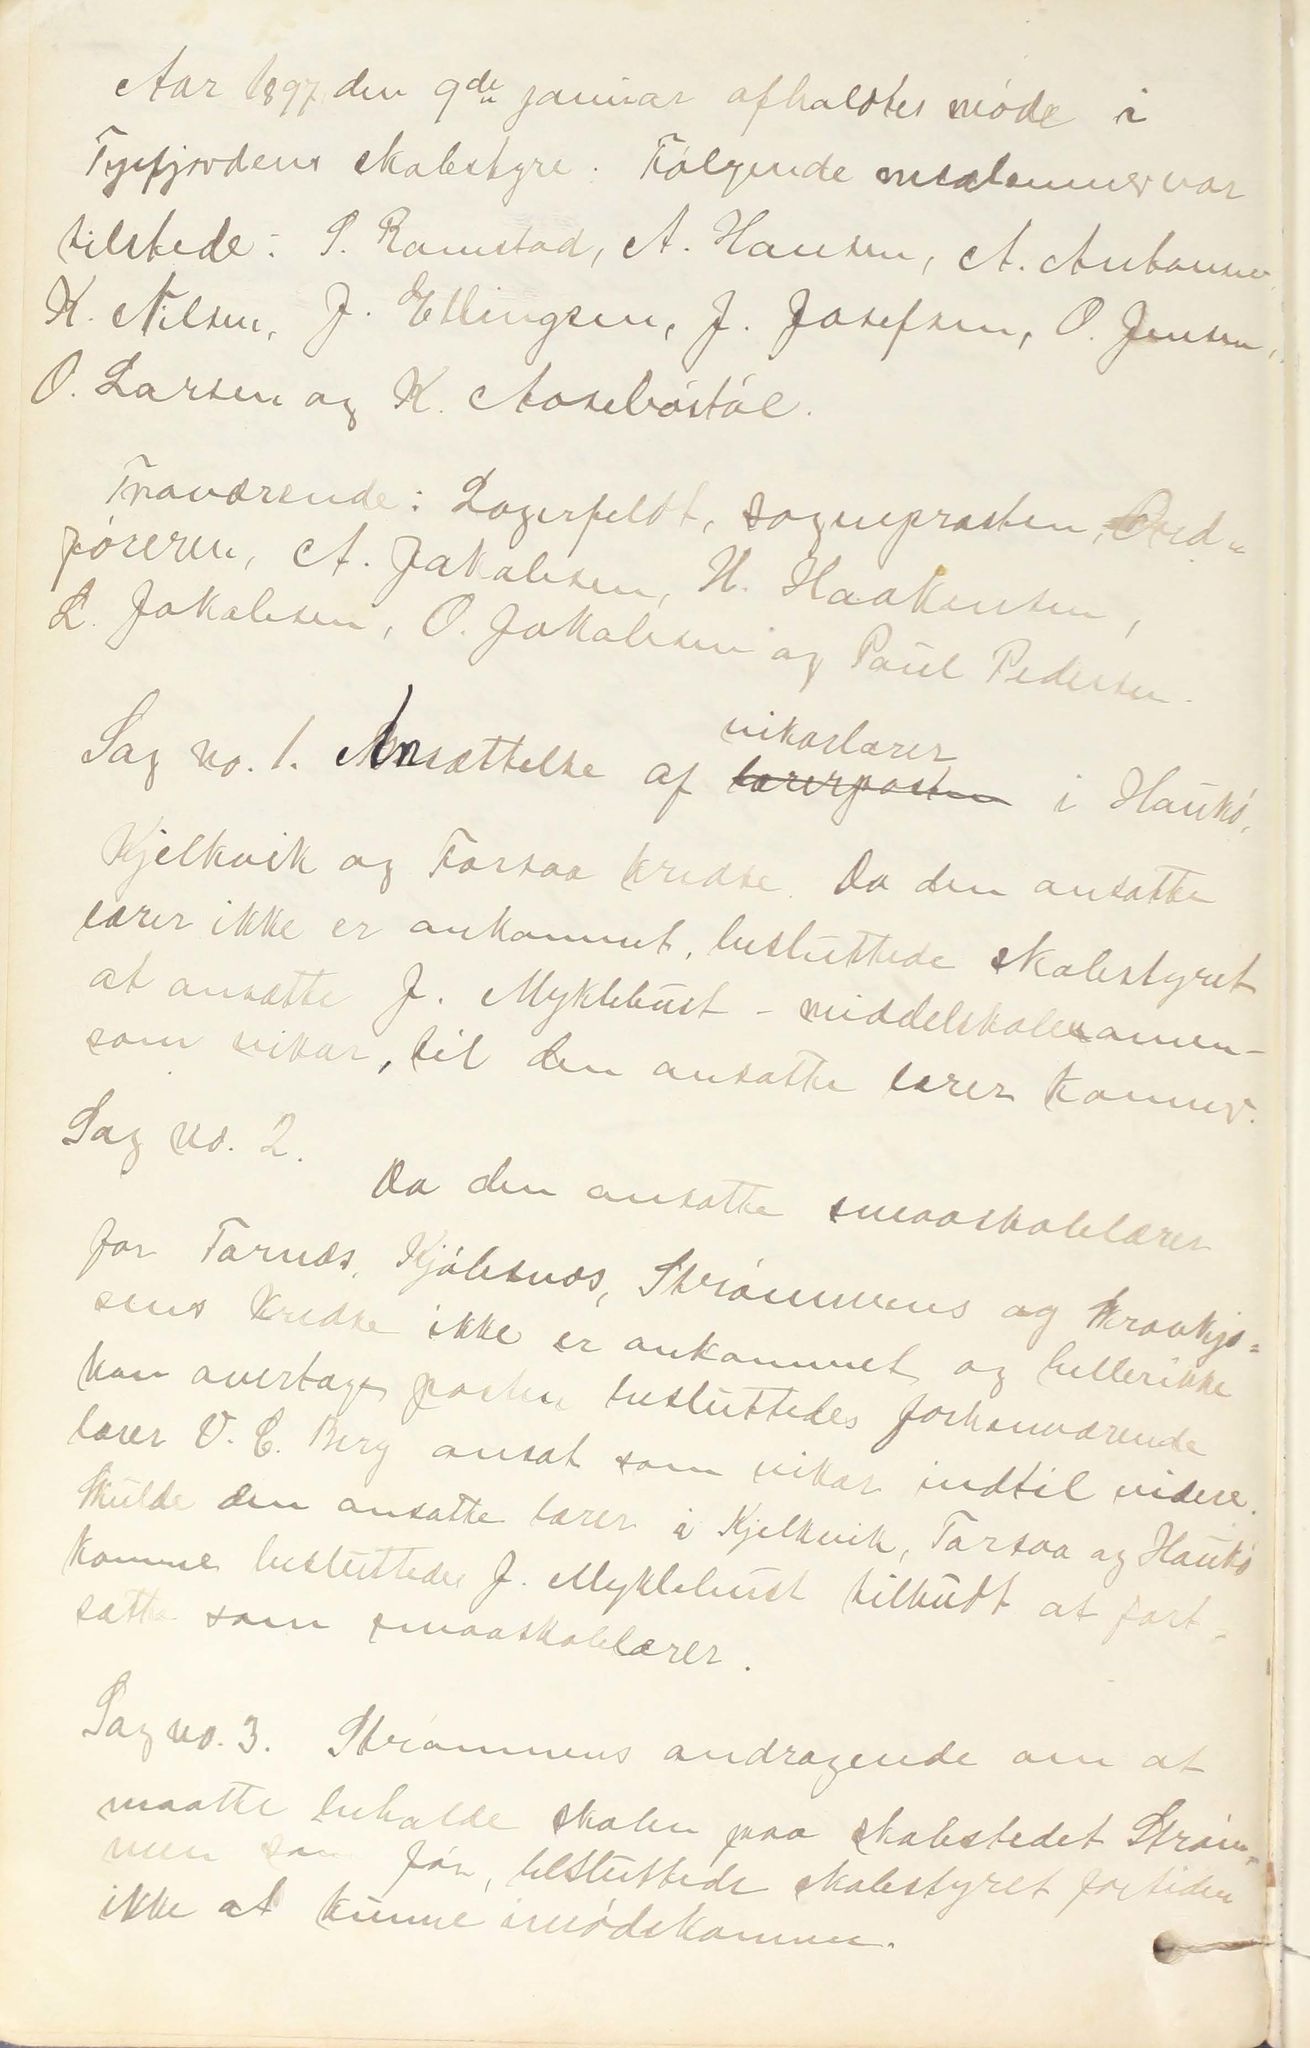 Aar 1897 den 9de januar afholdtes møde i
Tysfjordens skolestyre. Følgende medlemmer var
tilstede: S. Ramstad, A. Hansen, A. Antonsen,
K. Nilsen, J. Ellingsen, J. Josefsen, O. Jensen,
O. Larsen og K. Aasebøstøl.
Fraværende: Lagerfeldt, sognepræsten, Ord-
føreren, A. Jakobsen, H. Haakensen,
L. Jakobsen, O. Jakobsen og Paul Pedersen.
vikarlærer
Sag no. 1. Ansættelse af lærerposten i Haukø,
Kjelkvik og Forsaa kredse. Da den ansatte
lærer ikke er ankommet, besluttede skolestyret
at ansætte J. Myklebust - middelskolexamen -
som vikar, til den ansatte lærer kommer.
Sag no. 2.
Da den ansatte smaaskolelærer
for Tornæs, Kjølesnæs, Strømmens og Kravkjo-
sens kredse ikke er ankommet og heller ikke
kan overtage posten besluttedes forhenværende
lærer V. C. Berg ansat som vikar indtil videre.
Skulde den ansatte lærer i Kjelkvik, Forsaa og Haukø
komme besluttedes J. Myklebust tilbudt at fort-
sætte som smaaskolelærer.
Sag no. 3. Strømmens andragende om at
maatte beholde skolen paa skolestedet Strøm-
men som før, besluttede skolestyret fortiden
ikke at kunne imødekomme.